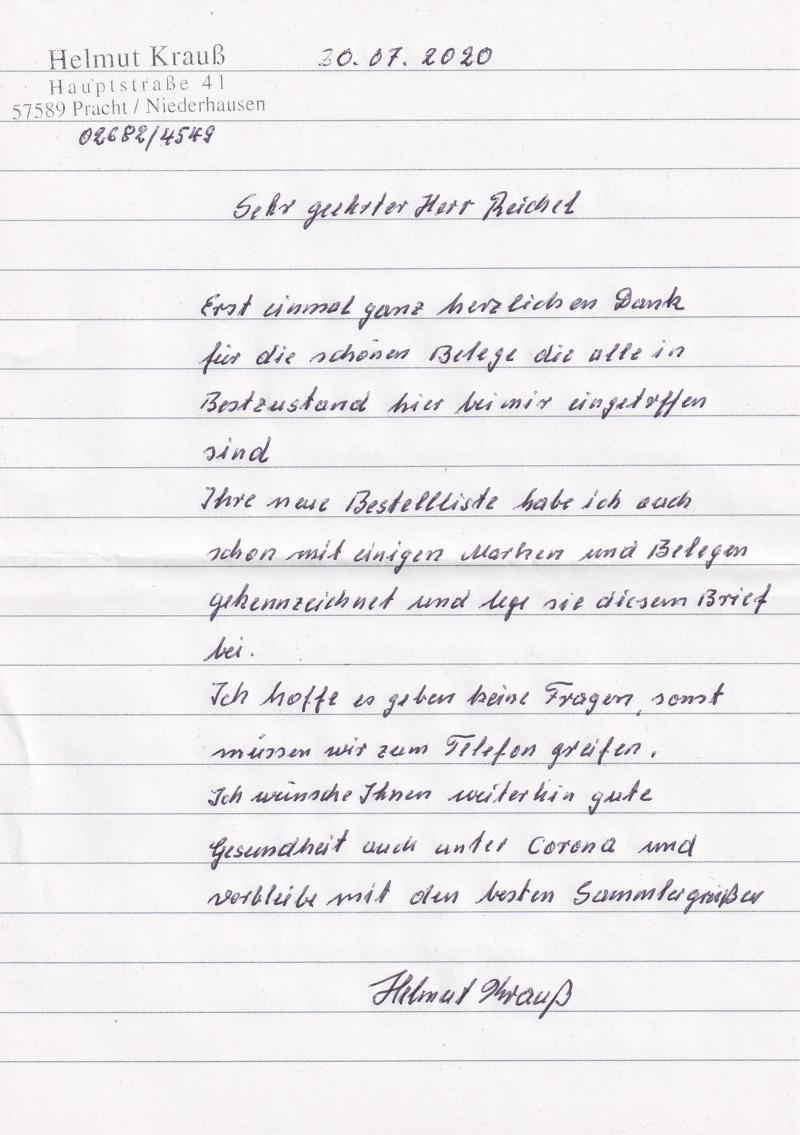 Helmut Krauß
Hauptstraße 41
57589 Pracht / Niederhausen
02682/4549
30.07.2020
Sehr geehrter Herr Reichel
Erst einmal ganz herzlichen Dank
für die schönen Belege die alle in
Bestzustand hier bei mir eingetroffen
sind
Ihre neue Bestellliste habe ich auch
schon mit einigen Marken und Belegen
gekennzeichnet und lege sie diesem Brief
bei.
Ich hoffe es geben keine Fragen, sonst
müssen wir zum Telefon greifen.
Ich wünsche Ihnen weiterhin gute
Gesundheit auch unter Corona und
verbleibe mit den besten Sammlergrüßen
Helmut Krauß